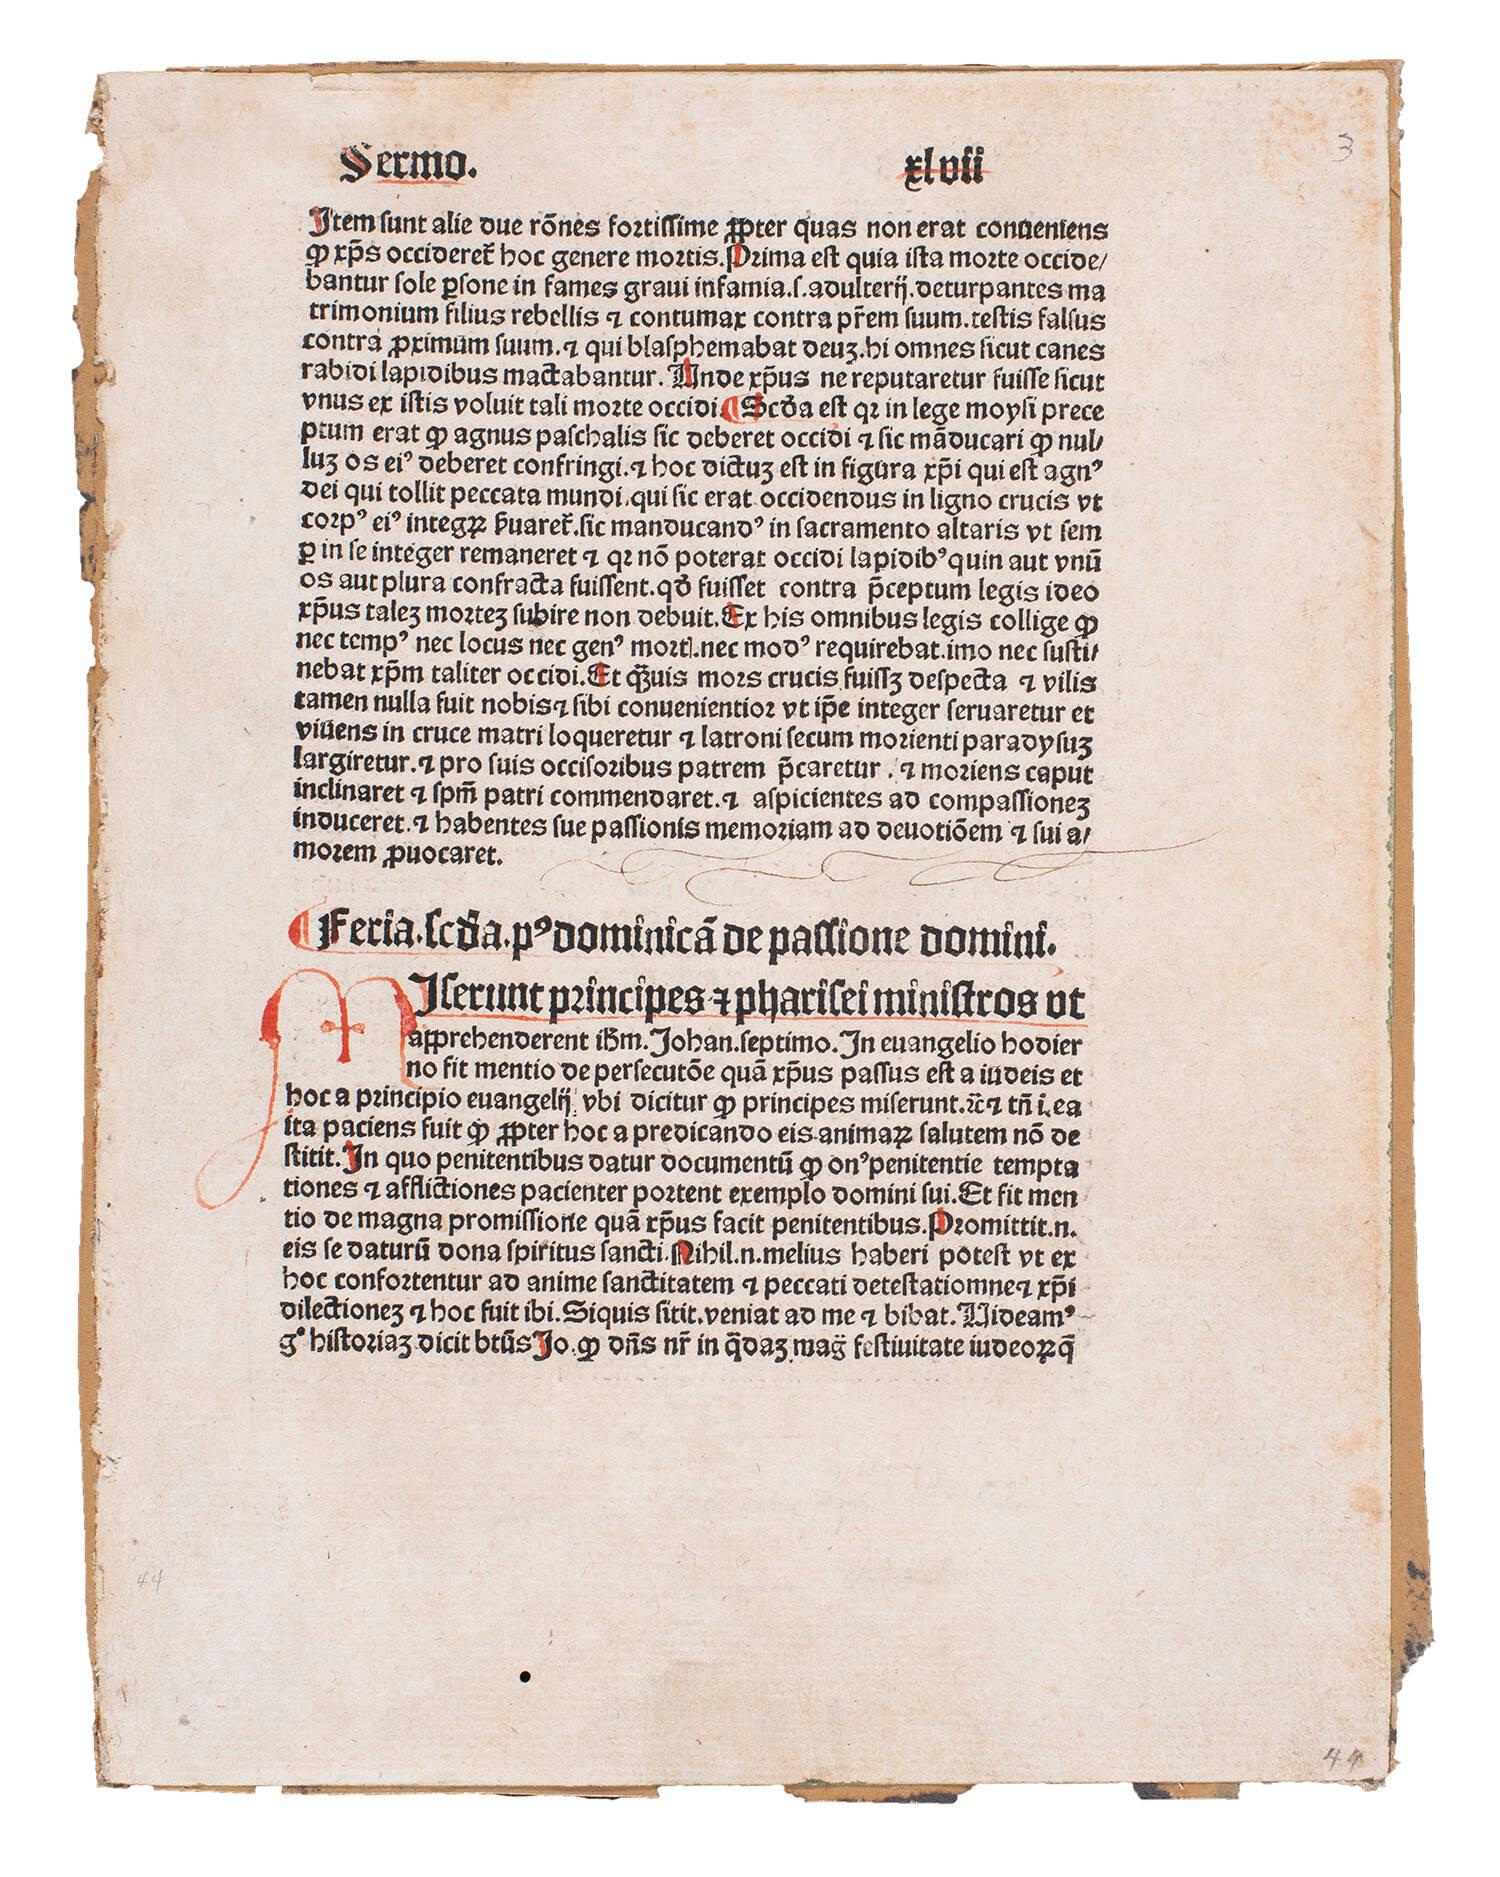 Sermo. xlvii
3
Item sunt alie due rōnes fortissime ꝓpter quas non erat conueniens
ꝙ xp̄s occideret̄ hoc genere mortis. Prima est quia ista morte occide/
bantur sole ꝑsone in fames graui infamia.s.adulterij.deturpantes ma
trimonium filius rebellis ⁊ contumax contra pr̄em suum.testis falsus
contra ꝓximum suum.⁊ qui blasphemabat deuꝫ.hi omnes sicut canes
rabidi lapidibus mactabantur. Unde xp̄us ne reputaretur fuisse sicut
vnus ex istis voluit tali morte occidi. ¶ Scd̄a est qꝛ in lege moysi prece
ptum erat ꝙ agnus paschalis sic deberet occidi ⁊ sic māducari ꝙ nul/
luꝫ os eiꝰ deberet confringi.⁊ hoc dictuꝫ est in figura xp̄i qui est agnꝰ
dei qui tollit peccata mundi.qui sic erat occidendus in ligno crucis vt
corpꝰ eiꝰ integꝝ ẜuaret̄.sic manducandꝰ in sacramento altaris vt sem
ꝑ in se integer remaneret ⁊ qꝛ nō poterat occidi lapidibꝰ quin aut vnū
os aut plura confracta fuissent.qd̄ fuisset contra p̄ceptum legis ideo
xp̄us taleꝫ morteꝫ subire non debuit. Ex his omnibus legis collige ꝙ
nec tempꝰ nec locus nec genꝰ mortꝭ.nec modꝰ requirebat.imo nec susti/
nebat xp̄m taliter occidi. Et qᷓuis mors crucis fuissꝫ despecta ⁊ vilis
tamen nulla fuit nobis ⁊ sibi conuenientior vt ip̄e integer seruaretur et
viuens in cruce matri loqueretur ⁊ latroni secum morienti paradysuꝫ
largiretur.⁊ pro suis occisoribus patrem p̄caretur .⁊ moriens caput
inclinaret ⁊ spm̄ patri commendaret.⁊ aspicientes ad compassioneꝫ
induceret.⁊ habentes sue passionis memoriam ad deuotiōem ⁊ sui a/
morem ꝓuocaret.
¶ Feria.scd̄a.pꝰ dominicā de passione domini.
MIserunt principes ⁊ pharisei ministros vt
apprehenderent ihm̄. Johan.septimo. In euangelio hodier
no fit mentio de persecutōe quā xp̄us passus est a iudeis et
hoc a principio euangelij vbi dicitur ꝙ principes miserunt.⁊c̄ ⁊ tn̄ i.ea
ita paciens fuit ꝙ ꝓpter hoc a predicando eis animaꝝ salutem nō de
stitit. In quo penitentibus datur documentū ꝙ onꝰ penitentie tempta
tiones ⁊ afflictiones pacienter portent exemplo domini sui. Et fit men
tio de magna promissione quā xp̄us facit penitentibus. Promittit.n.
eis se daturū dona spiritus sancti. Nihil.n.melius haberi potest vt ex
hoc confortentur ad anime sanctitatem ⁊ peccati detestationem ⁊ xp̄i
dilectioneꝫ ⁊ hoc fuit ibi. Siquis sitit.veniat ad me ⁊ bibat. Uideamꝰ
gͦ historiaꝫ dicit btūs Jo.ꝙ dn̄s nr̄ in qᷓdaꝫ mag̈ festiuitate iudeoꝝ q̄
44
44